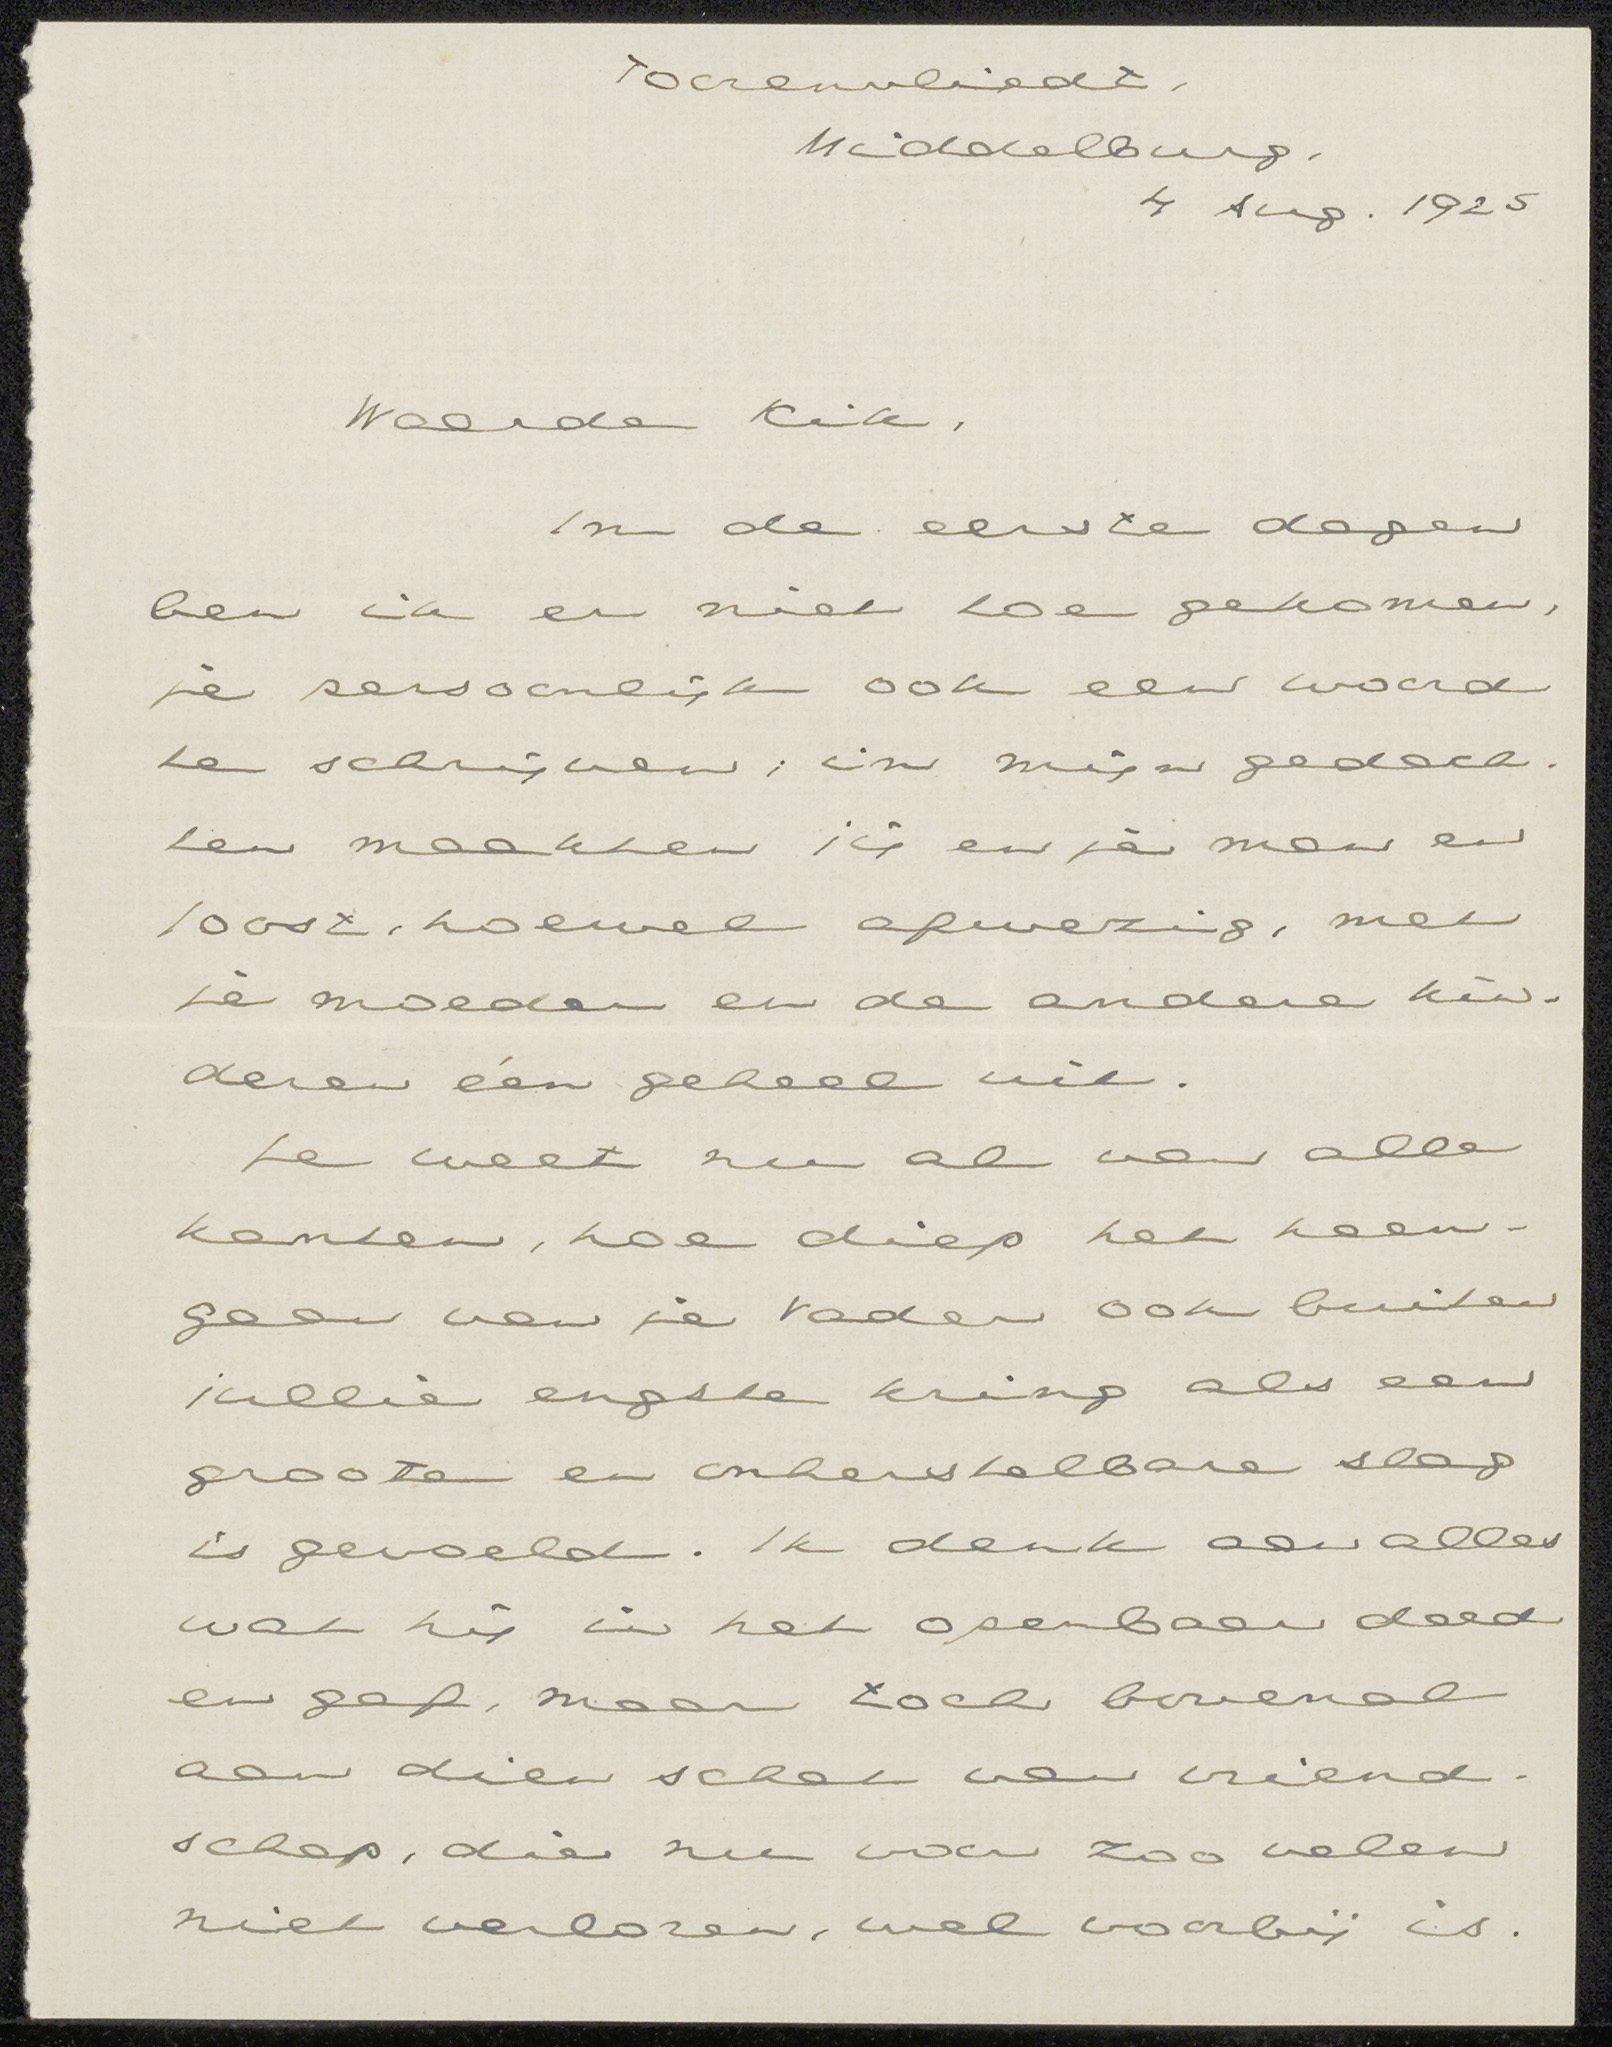 Toorenvliedt,
Middelburg,
4 Aug. 1925
Waarde Kik,
In de eerste dagen
ben ik er niet toe gekomen,
je persoonlijk ook een woord
te schrijven; in mijn gedach-
ten maakten jij en je man en
Joost, hoewel afwezig, met
je moeder en de andere kin-
deren één geheel uit.
Je weet nu al van alle
kanten, hoe diep het heen-
gaan van je Vader ook buiten
jullie engste kring als een
groote en onherstelbare slag
is gevoeld. Ik denk aan alles
wat hij in het openbaar deed
en gaf, maar toch bovenal
aan dien schat van vriend-
schap, die nu voor zoo velen
niet verloren, wel voorbij is.